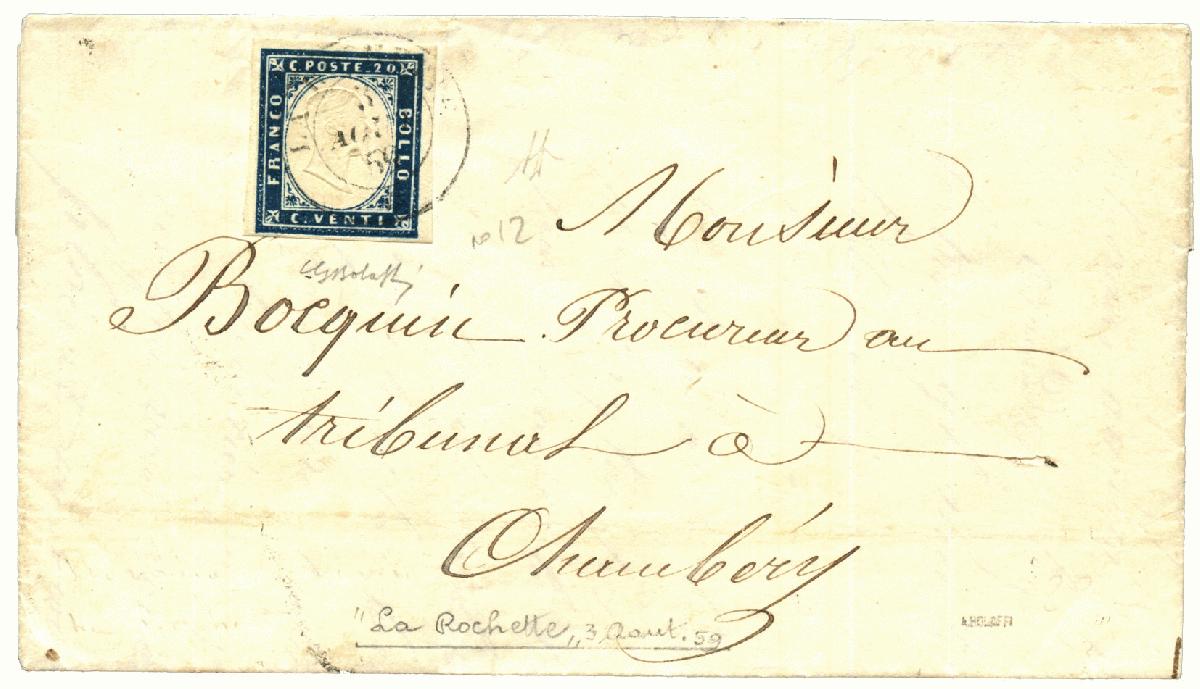 C. POSTE. 20.
FRANCO
BOLLO
C. VENTI
LA
AO
59
No 12
Monsieur
Bocquin Procureur au
tribunal à
Chambéry
"La Rochette„ 3 Aout. 59
A.BOLAFFI